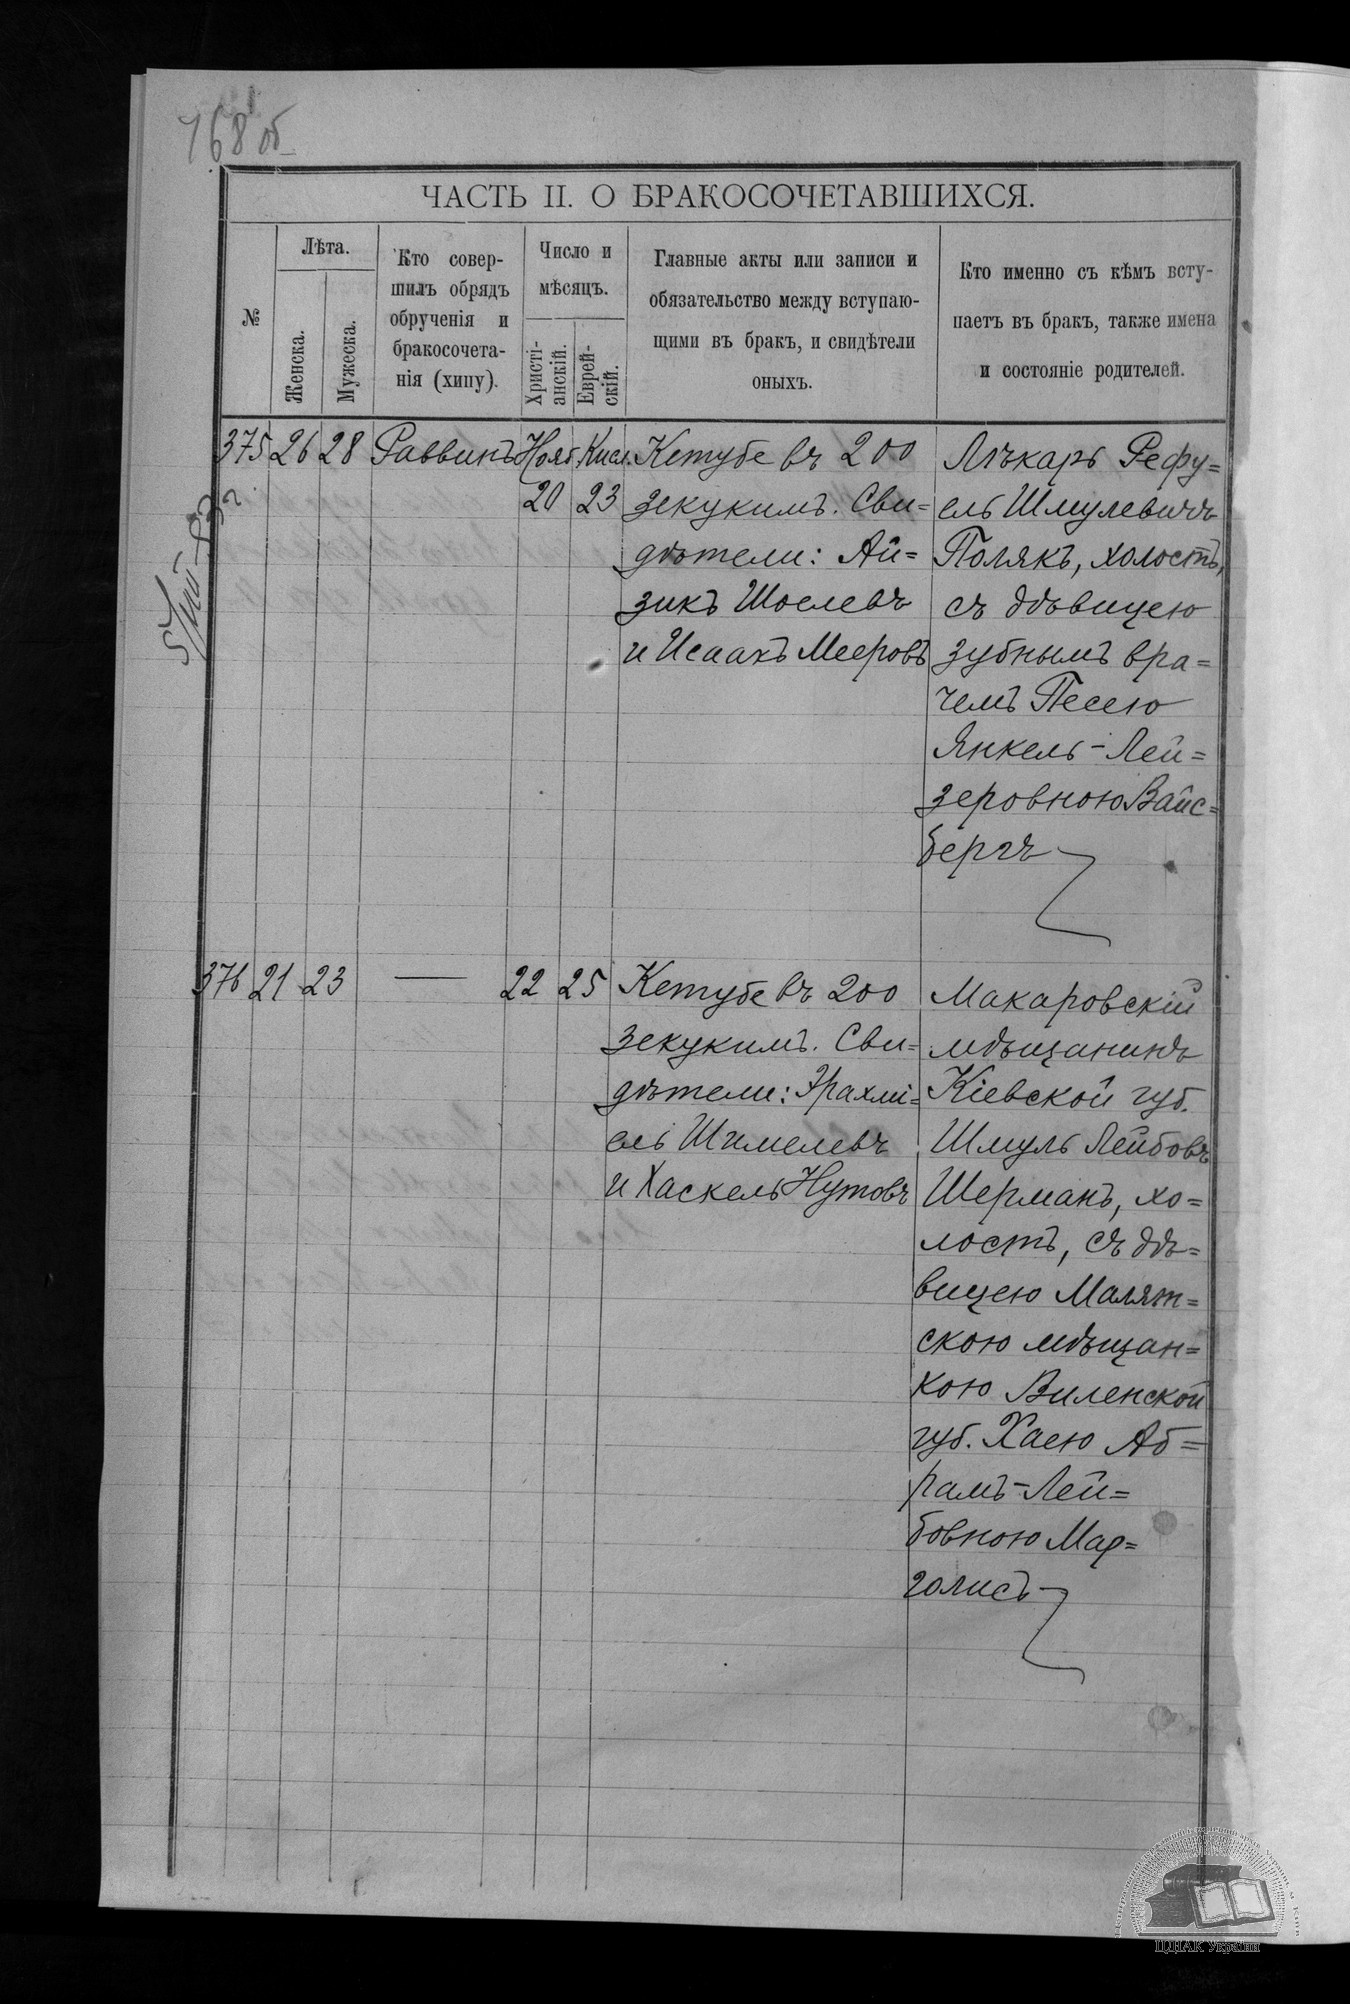 768 об
ЧАСТЬ II. О БРАКОСОЧЕТАВШИХСЯ.
№
Лѣта.
Женска.
Мужеска.
Кто совер-
шилъ обрядъ
обрученія и
бракосочета-
нія (хипу).
Число и
мѣсяцъ.
Христі-
анскій.
Еврей-
скій.
Главные акты или записи и
обязательство между вступаю-
щими въ бракъ, и свидѣтели
оныхъ.
Кто именно съ кѣмъ всту-
паетъ въ брак, также имена
и состояніе родителей.
375 26 28 Раввинъ Нояб. Кисл.
20 23
Кетубе въ 200
зекукимъ. Сви=
дѣтели: Ай=
зикъ Шоелевъ
и Исаакъ Мееровъ
Лѣкарь Рефу=
ель Шмулевичъ
Полякъ, холостъ,
съ дѣвицею
зубнымъ вра=
чемъ Песею
Янкель-Лей=
зеровною Вайс=
бергъ
376 21 23 — 22 25
Кетубе въ 200
зекукимъ. Сви=
дѣтели: Ірахмі=
ель Шимелевъ
и Хаскель Нутовъ
Макаровскій
мѣщанинъ
Кіевской губ.
Шмуль Лейбовъ
Шерманъ, хо=
лостъ, съ дѣ=
вицею Малят=
скою мѣщан=
кою Виленской
губ. Хаею Аб=
рамъ-Лей=
бовною Мар=
голисъ
ЦДІАК України